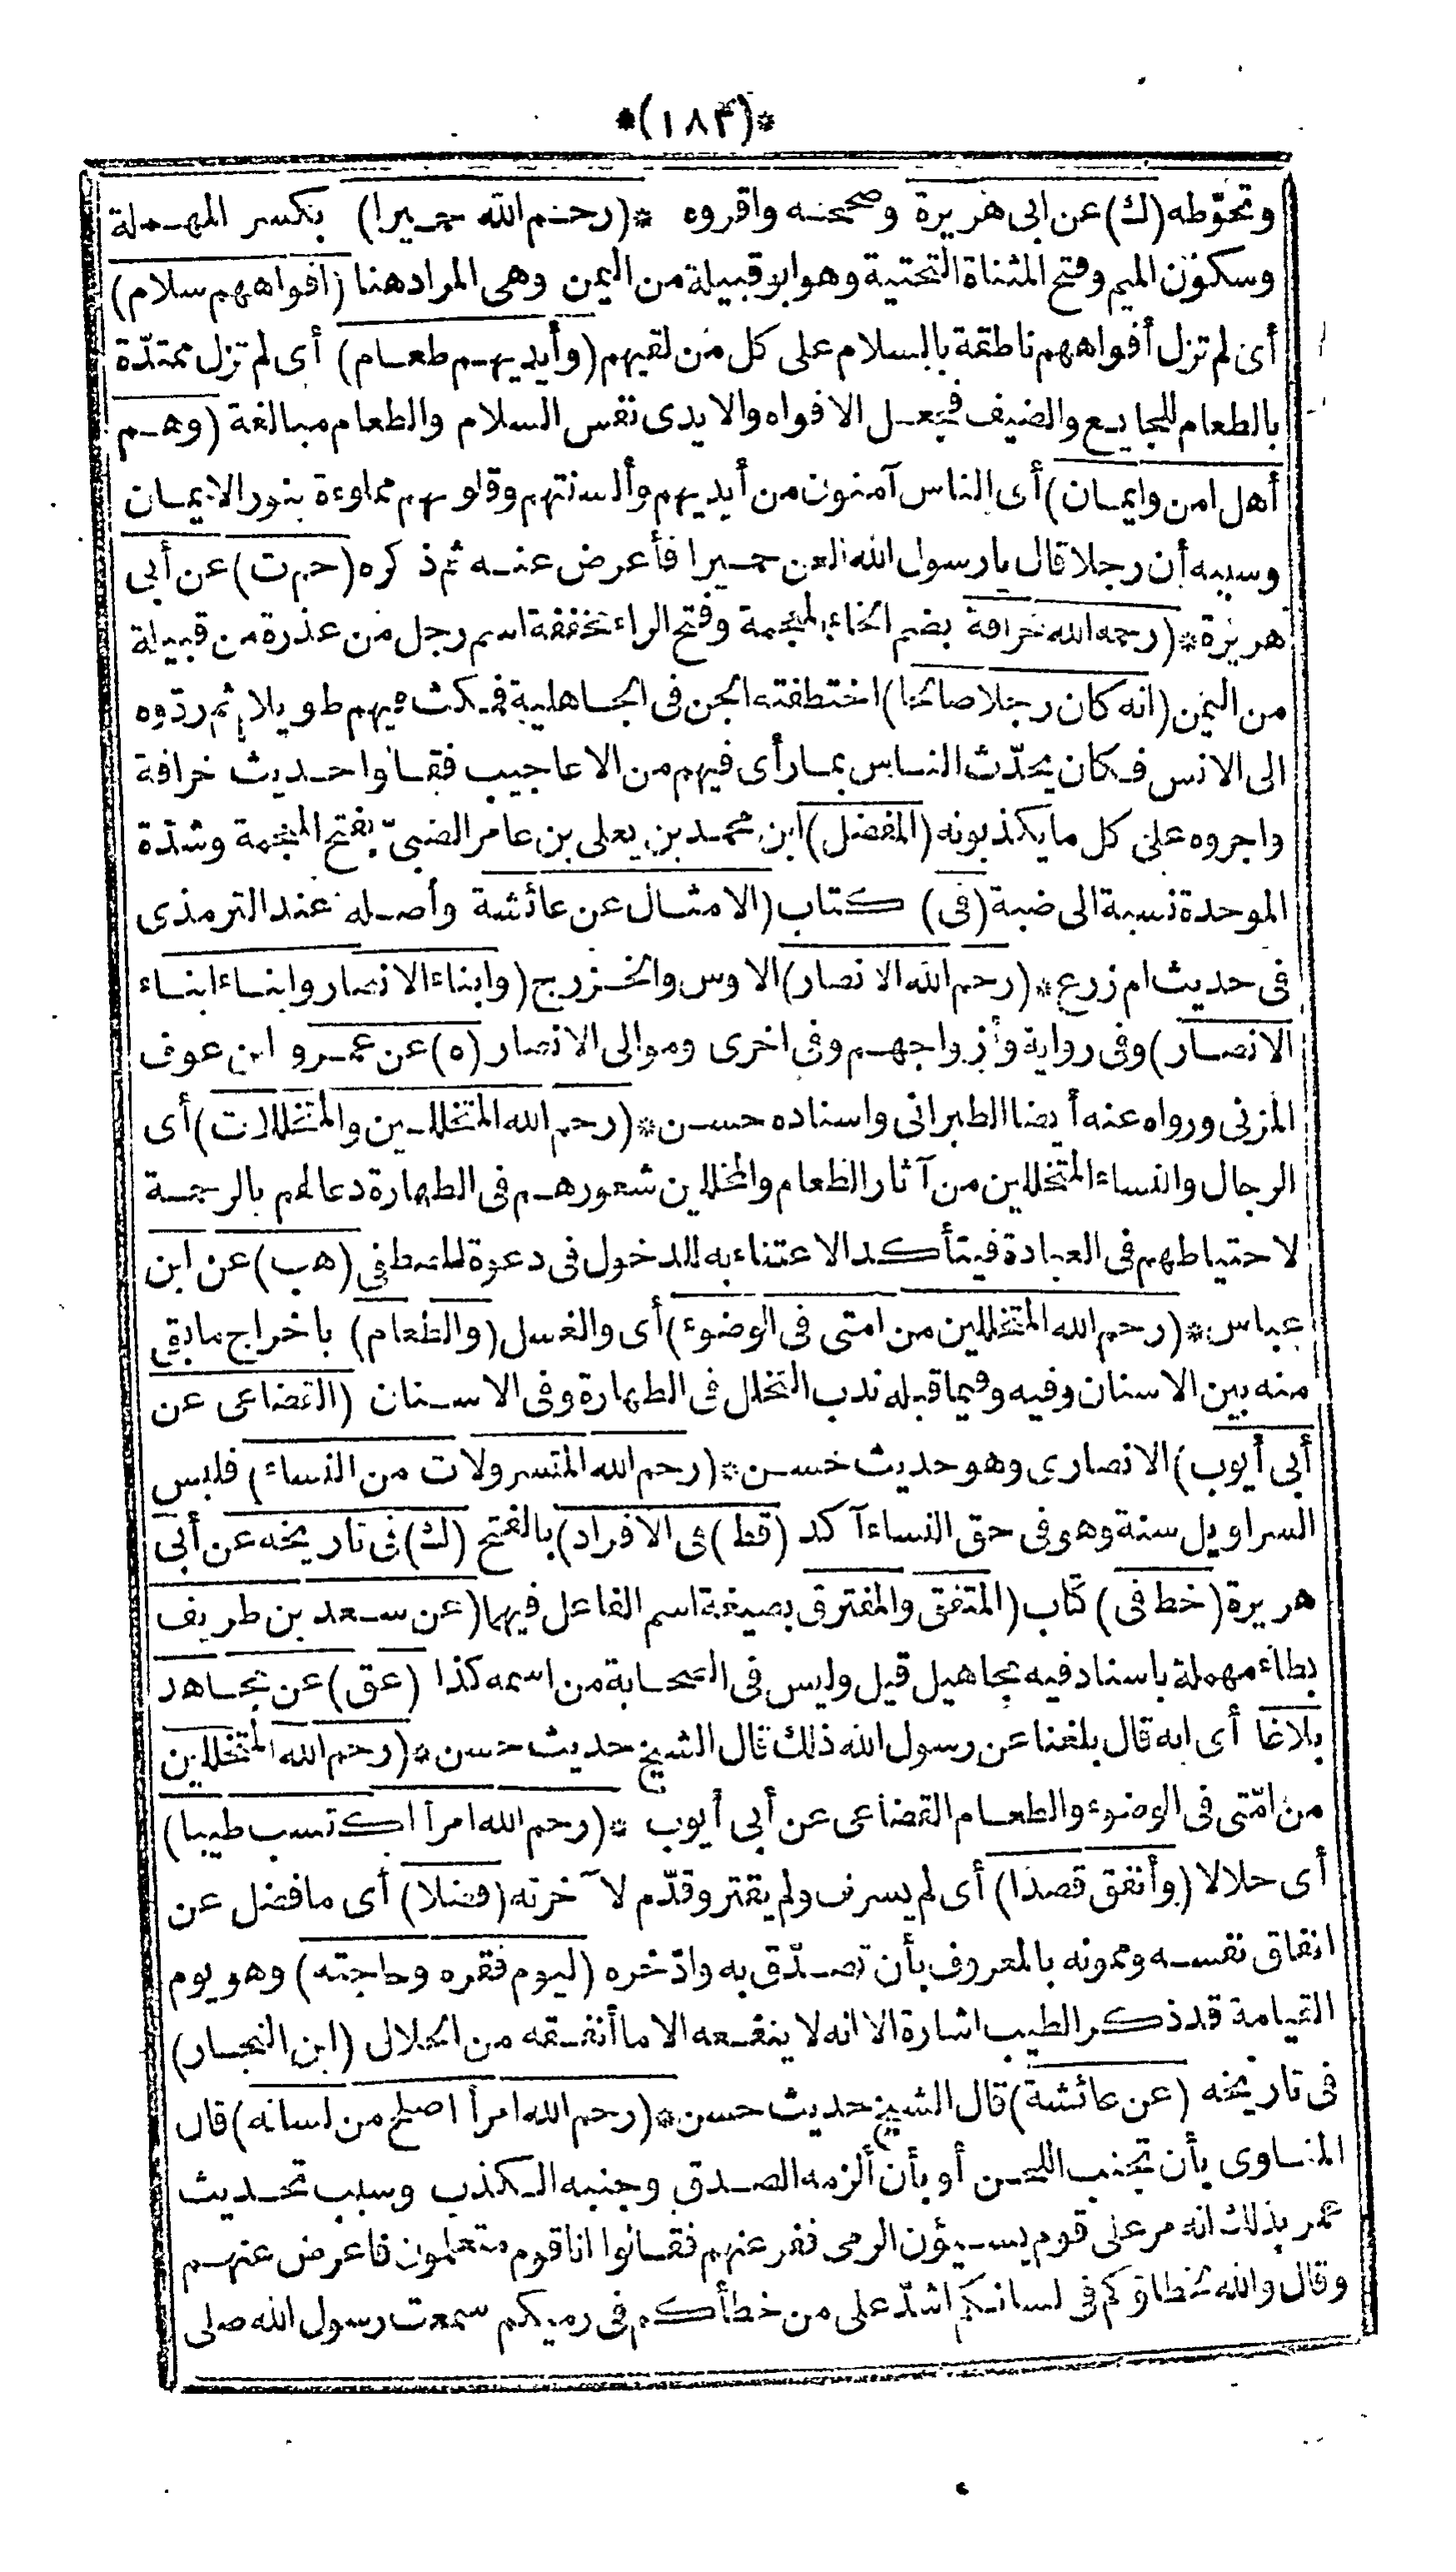 *(١٨٣)*
وتحوّطه (ك) عن ابى هريرة وصححه واقروه * (رحم الله حميرا) بكسر المهملة
وسكون الميم وفتح المثناة التحتية وهو ابو قبيلة من اليمن وهى المراد هنا (افواههم سلام)
أى لم تزل أفواههم ناطقة بالسلام على كل من لقيهم (وأيديهم طعام) أى لم تزل ممتدّة
بالطعام للجايع والضيف فجعل الافواه والايدى نفس السلام والطعام مبالغة (وهم
أهل امن وايمان) أى الناس آمنون من أيديهم وألسنتهم وقلوبهم مملوءة بنور الايمان
وسببه أن رجلا قال يا رسول الله العن حميرا فأعرض عنه ثم ذكره (حم ت) عن أبى
هريرة * (رحم الله خرافة بضم الخاء المعجمة وفتح الراء مخففة اسم رجل من عذرة من قبيلة
من اليمن (انه كان رجلا صالحا) اختطفته الجن فى الجاهلية فمكث فيهم طويلا ثم ردّوه
الى الانس فكان يحدّث الناس بما رأى فيهم من الاعاجيب فقالوا حديث خرافة
واجروه على كل ما يكذبونه (المفضل) ابن محمد بن يعلى بن عامر الضبىّ بفتح المعجمة وشدّة
الموحدة نسبة الى ضبة (فى) كتاب (الامثال عن عائشة وأصله عند الترمذى
فى حديث ام زرع * (رحم الله الانصار) الاوس والخزرج (وابناء الانصار وابناء ابناء
الانصار) وفى رواية وأزواجهم وفى اخرى وموالى الانصار (ه) عن عمرو ابن عوف
المزنى ورواه عنه أيضا الطبرانى واسناده حسن * (رحم الله المتخللين والمتخللات) أى
الرجال والنساء المتخللين من آثار الطعام والمخللين شعورهم فى الطهارة دعا لهم بالرحمة
لاحتياطهم فى العبادة فيتأكد الاعتناء به للدخول فى دعوة المصطفى (هب) عن ابن
عباس * (رحم الله المتخللين من امتى فى الوضوء) أى والغسل (والطعام) باخراج ما بقى
منه بين الاسنان وفيه وفيما قبله ندب التخلل فى الطهارة وفى الاسنان (القضاعى عن
أبى أيوب) الانصارى وهو حديث حسن * (رحم الله المتسرولات من النساء) فلبس
السراويل سنة وهو فى حق النساء آكد (قط) فى الافراد) بالفتح (ك) فى تاريخه عن أبى
هريرة (خط فى) كتاب (المتفق والمفترق بصيغة اسم الفاعل فيهما (عن سعد بن طريف
بطاء مهملة باسناد فيه مجاهيل قيل وليس فى الصحابة من اسمه كذا (عق) عن مجاهد
بلاغا أى انه قال بلغنا عن رسول الله ذلك قال الشيخ حديث حسن * (رحم الله المتخللين
من امّتى فى الوضوء والطعام القضاعى عن أبى أيوب * (رحم الله امرأ اكتسب طيبا)
أى حلالا (وأنفق قصدا) أى لم يسرف ولم يقتر وقدّم لآخرته (فضلا) أى ما فضل عن
انفاق نفسه وممونه بالمعروف بأن تصدّق به وادّخره (ليوم فقره وحاجته) وهو يوم
القيامة قد ذكر الطيب اشارة الا انه لا ينفعه الا ما أنفقه من الحلال (ابن النجار)
فى تاريخه (عن عائشة) قال الشيخ حديث حسن * (رحم الله امرأ اصلح من لسانه) قال
المناوى بأن تجنب اللحن أو بأن ألزمه الصدق وجنبه الكذب وسبب تحديث
عمر بذلك انه مر على قوم يسيؤن الرمى فقرعهم فقالوا انا قوم متعلمون فاعرض عنهم
وقال والله لخطاؤكم فى لسانكم اشدّ على من خطأكم فى رميكم سمعت رسول الله صلى